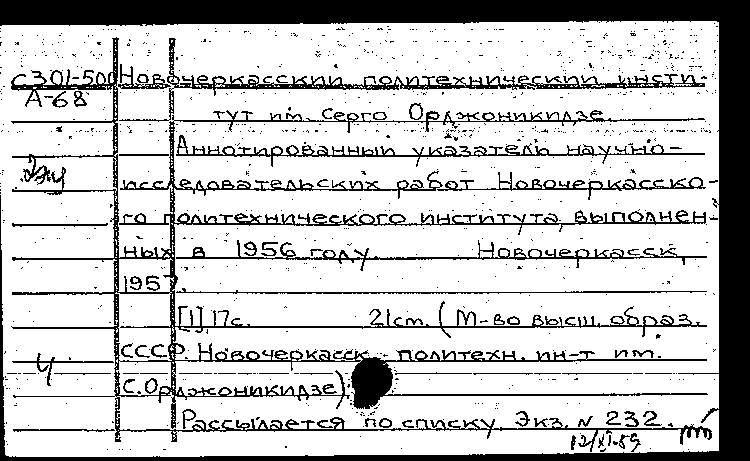 С301-500 Новочеркасский политехнический инсти-
А-68 тут им. Серго Орджоникидзе.
Аннотированный указатель научно-
исследовательских работ Новочеркасско-
го политехнического института, выполнен-
ных в 1956 году. Новочеркасск,
1957.
[1],17с. 21cm. (М-во высш. образ.
СССР. Новочеркасск. политехн. ин-т им.
4 С.Орджоникидзе).
Рассылается по списку. Экз. N 232.
12/XI-59